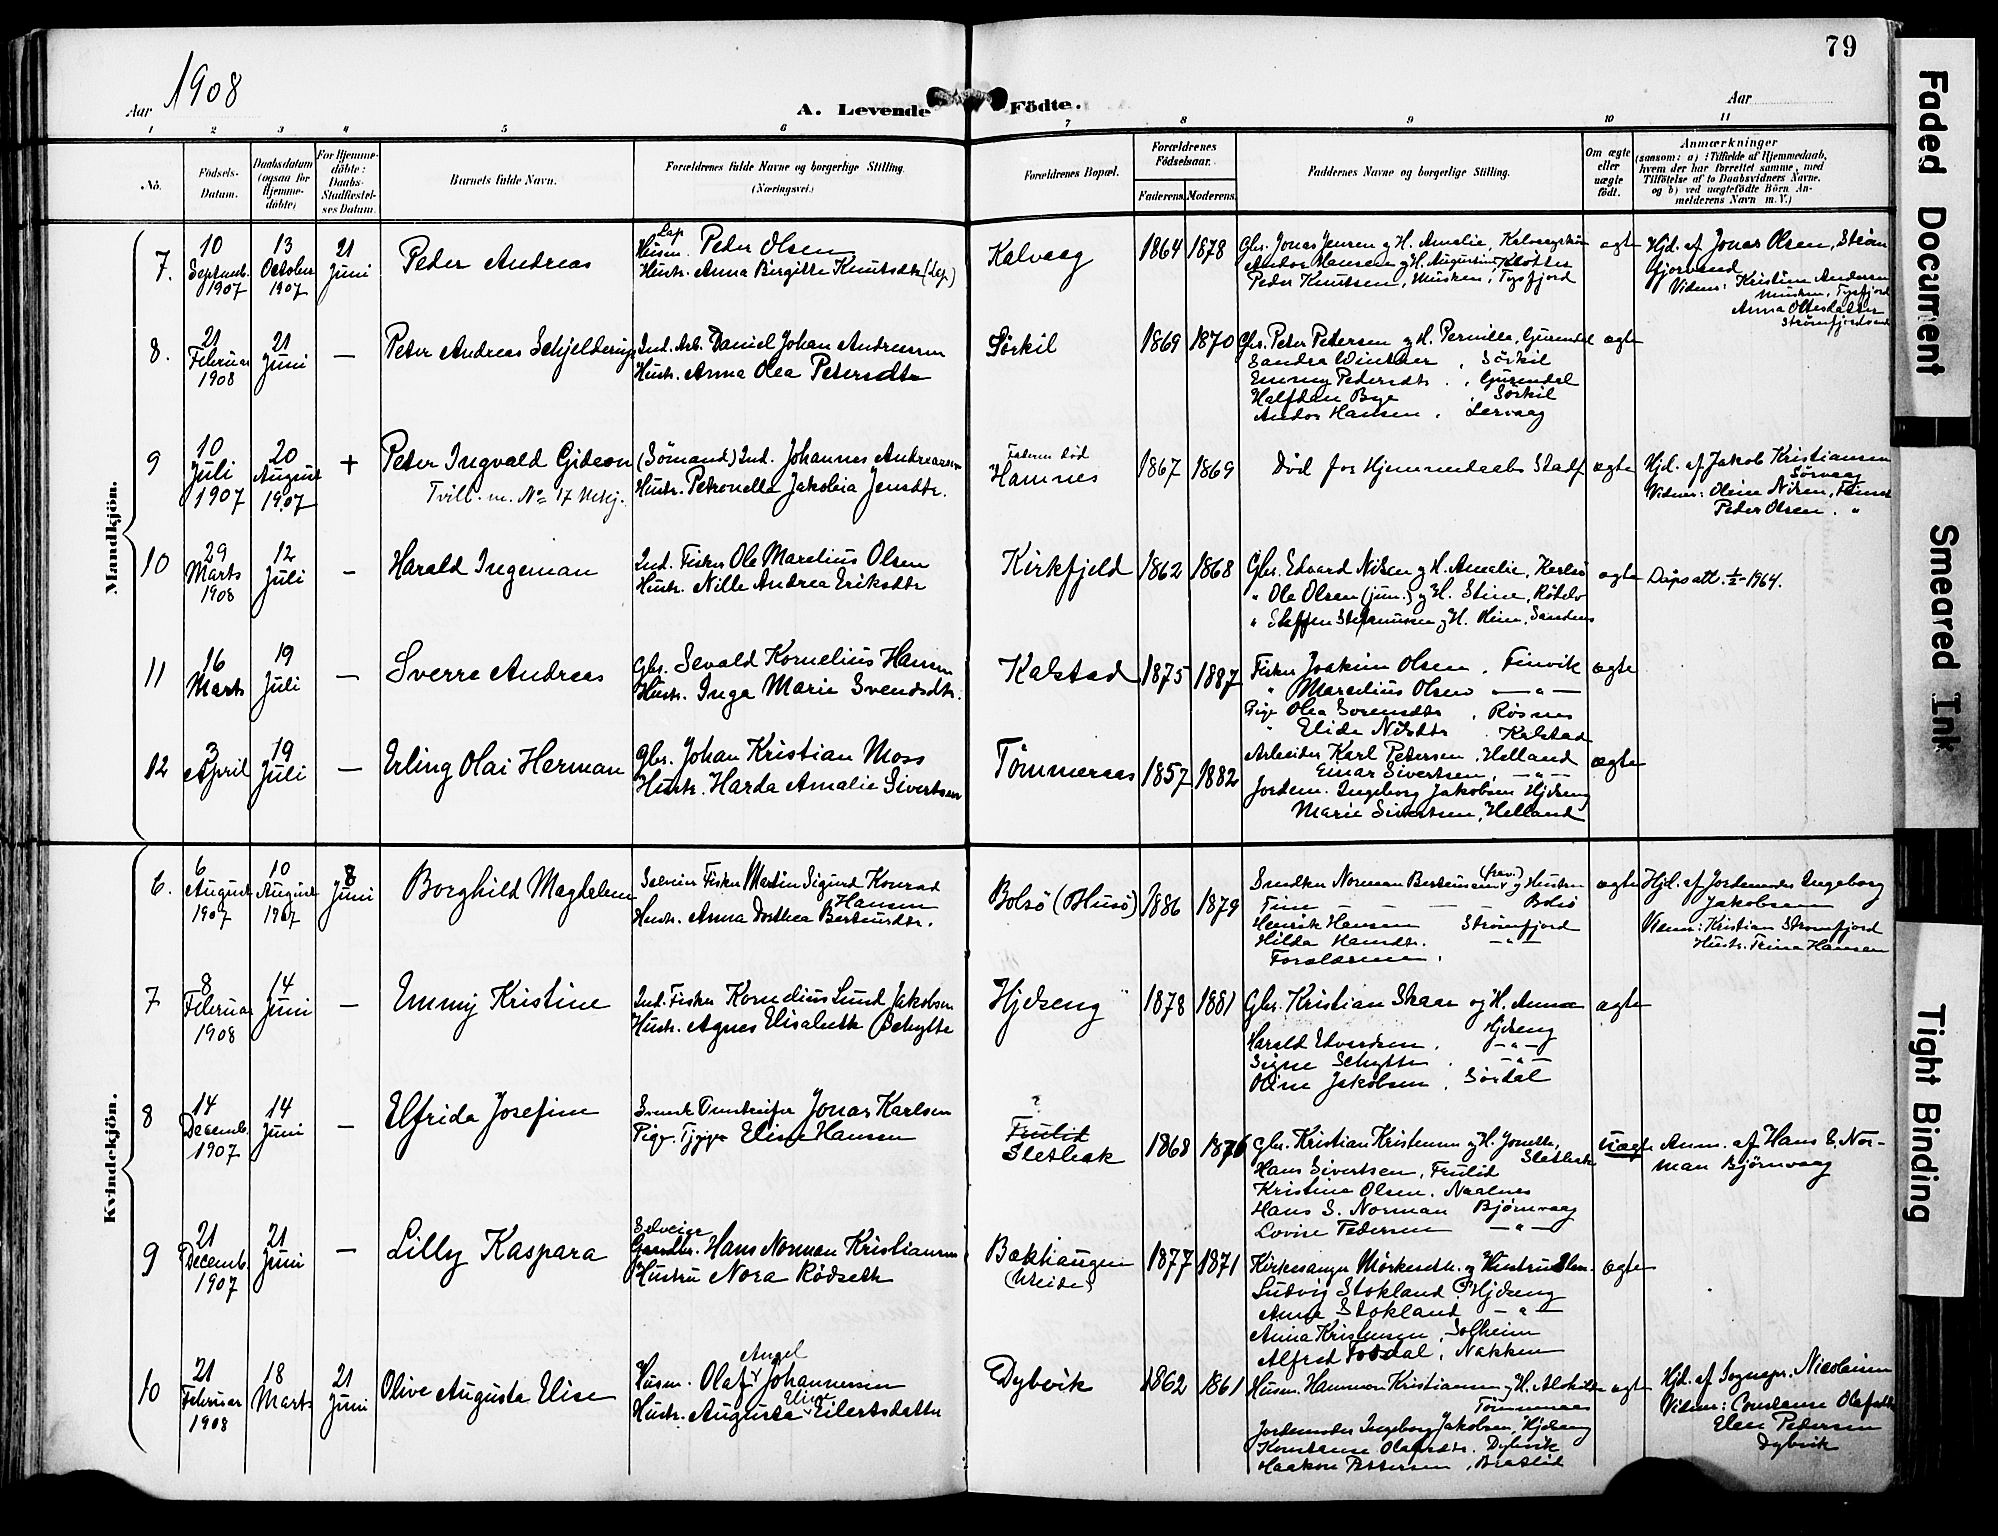 79
Aar 1908
A. Levende Födte.
Aar
1 2 3 4 5 6 7 8 9 10 11
No.
Födsels-
Datum.
Daabsdatum
(ogsaa for
Hjemme-
døbte)
For Hjemme-
döbte:
Daabs-
Stadfæstel-
ses Datum.
Barnets fulde Navn.
Forældrenes fulde Navne og borgerlige Stilling.
(Næringsvei.)
Forældrenes Bopæl.
Forældrenes
Födselsaar.
Faderens. Moderens.
Faddernes Navne og borgerlige Stilling.
Om ægte
eller
uægte
født.
Anmærkninger
(saasom: a) i Tilfælde af Hjemmedaab,
hvem der har forrettet samme, med
Tilföielse af to Daabsvidners Navne.
og b) ved uægtefödte Börn An-
melderens Navn m. V.)
Mandkjön.
7.
10
Septemb.
1907
13
October
1907
21
Juni
Peder Andreas
Lap
Husm. Peder Olsen
Hustr. Anna Birgitte Knutsdtr (Lap)
Kalvaag
1864 1878
Gbr. Jonas Jensen og H. Amalie,
Andor Hansen og H. Augustine,
Peder Knutsen, Musken, Tysfjord
ægte
Hjd. af Jonas Olsen, Strøm
fjorvend
Vidner: Kristine Andersen
Musken, Tysfjord
Anna Oltesdatter
Strømfjordvend
8.
21
Februar
1908
21
Juni
—
Peter Andreas Schjelderup
Ind. Arb. Daniel Johan Andreassen
Hustr. Anna Olea Petersdtr
Sørkil
1869 1870
Gbr. Peter Petersen og H. Pernille, Gurendal
Sandra Winther, Sørkil
Emmy Pedersdtr., Gurendal
Halfdan Bye, Sørkil
Andor Hansen, Lervaag
ægte
9
10
Juli
1907
20
August
1907
+
Peter Ingvald Gideon
Tvill. m. No 17 Mskj.
(Sømand) Ind. Johannes Andreassen
Hustr. Petronelle Jakobia Jensdtr.
Faderen død
Hamnes
1867 1869
Død før Hjemmedaabs Stadf.
ægte
Hjd. af Jakob Kristiansen
Sørvaag
Vidner: Oline Nilsen,
Peder Olsen. "
10
29
Marts
1908
12
Juli
–
Harald Ingeman
Ind. Fisker Ole Marelius Olsen
Hustr. Nille Andrea Eriksdtr
Kirkfjeld
1862 1868
Gbr. Edvard Nilsen og H. Amalie, Karlsø
" Ole Olsen (jun.) og H. Stine,
" Steffen Steffensen og H. Oline, Sandnes
ægte
Dåpsatt. 1/2-1964.
11
16
Marts
19
Juli
—
Sverre Andreas
Gbr. Sevald Kornelius Hansen
Hustr. Inga Marie Svendsdtr.
Kalstad
1875 1887
Fisker Joakim Olsen. Finvik
" Marelius Olsen — " —
Pige Olea Sørensdtr, Røsnes
" Elida Nilsdtr. Kalstad
ægte
12
3
April
19
Juli
—
Erling Olai Herman
Gbr. Johan Kristian Moss
Hustr. Harda Amalie Sivertsen
Tømmeraas
1857 1882
Arbeider Karl Petersen, Helland
Einar Sivertsen, — " —
Jordem. Ingeborg Jakobsen Hjelseng
Marie Sivertsen, Helland
ægte
Kvindekjön.
6.
6
August
1907
10
August
1907
8
Juni
Borghild Magdelene
Selveier Fisker Martin Sigurd Konrad
Hansen
Hustr. Anna Dorthea Berteusdtr.
Bolsø (Husø)
1886 1879
Snedker Norman Berteussen og Hustru
Tine — — — Bolsø
Henrik Hansen Strømfjord
Hilda Hansdtr. — " —
Forældrene.
ægte
Hjd. af Jordemoder Ingeborg
Jakobsen
Vidner: Kristian Strømfjord
Hustr. Trina Hansen
7
8
Februar
1908
14
Juni
—
Emmy Kristine
Ind. Fisker Kornelius Lund Jakobsen
Hustr. Agnes Elisabeth Schytte
Hjelseng
1878 1881
Gbr. Kristian Skaar og H. Anna
Hjelseng
Harald Edvardsen. — " —
Signe Schytte. — " —
Oline Jakobsen, Sørdal
ægte
8
14
Decemb.
1907
14
Juni
–
Elfrida Josefine
Svensk Jonas Karlsen
Pige. Elise Hansen
?
Frulid
Sletbak
1868 1876
Gbr. Kristian Kristensen og H. Jonette,
Sletbak
Hans Sivertsen, Frulid
Kristine Olsen. Naalnes
Hans S. Norman Bjørnvaag
Lovise Pedersen — " —
uægte
Anm. af Hans S. Nor-
man Bjørnvaag
9
21
Decemb.
1907
21
Juni
—
Lilly Kaspara
Selveier
Gaardbr. Hans Norman Kristiansen
Hustru Nora Rødseth
Bakhaugen
1877 1871
Kirkesanger og Hustru
Ludvig Stokland, Hjelseng
Anna Stokland — " —
Anna Kristensen, Solheim
Alfred Fosdal, Nakken
ægte
10
21
Februar
1908
18
Marts
21
Juni
Olive Augusta Elise
Angel
Husm. Olaf Johannessen
Elise
Hustr. Augusta Eilertsdatter
Dybvik
1862 1861
Husm. Hammon Kristiansen og H.
Tømmeraas
Jordemoder Ingeborg Jakobsen, Hjelseng
Konstanse Olafsdtr. Dybvik
Haakon Pettersen,
ægte
Hjd. af Sognepr. Nicolaisen
Vidner: Constanse Olafsdtr
Elen Pedersen
Dybvik
Faded Document
Smeared Ink
Tight Binding